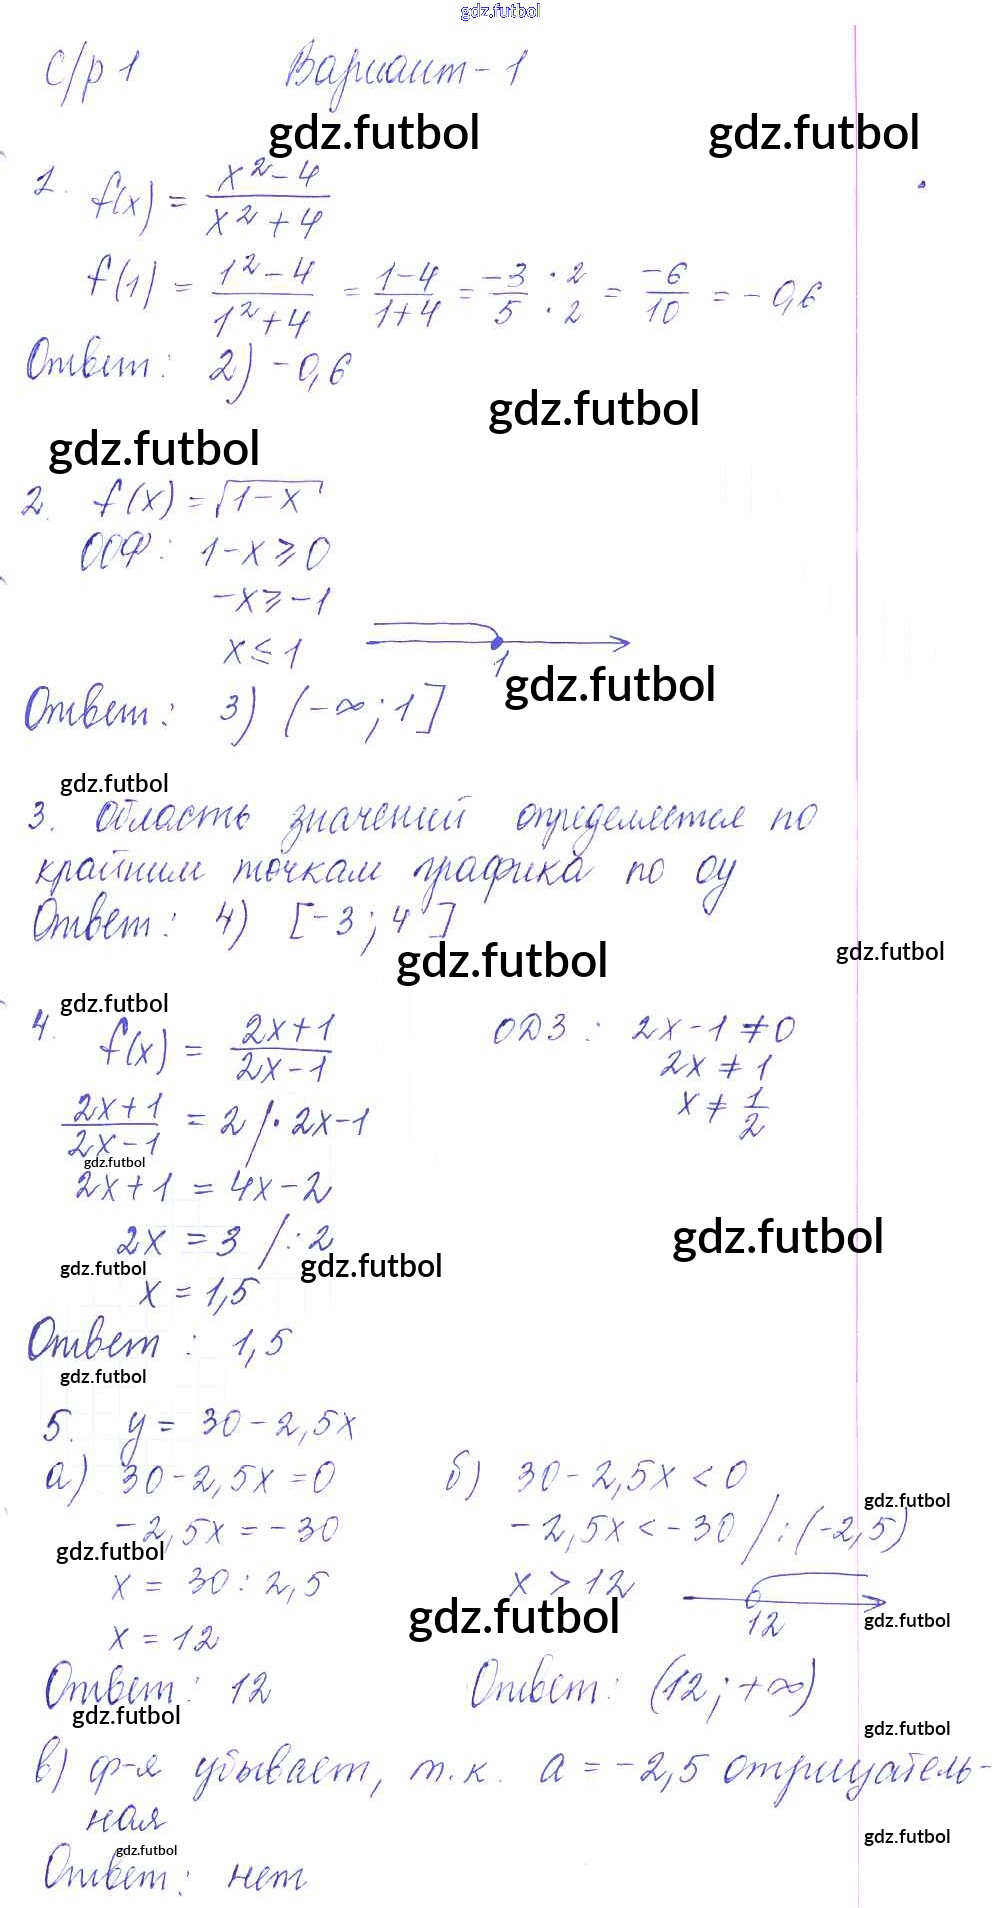 gdz.futbol
С/р 1 Вариант - 1
gdz.futbol gdz.futbol
1. f(x) = (x² - 4)/(x² + 4)
f(1) = (1² - 4)/(1² + 4) = (1 - 4)/(1 + 4) = (-3 · 2)/(5 · 2) = -6/10 = -0,6
Ответ: 2) -0,6
gdz.futbol
gdz.futbol
2. f(x) = √(1 - x)
ООФ: 1 - x ⩾ 0
-x ⩾ -1
x ≤ 1
1
gdz.futbol
Ответ: 3) (-∞; 1]
gdz.futbol
3. Область значений определяется по
крайним точкам графика по оу
Ответ: 4) [-3; 4]
gdz.futbol gdz.futbol
gdz.futbol
4. f(x) = (2x + 1)/(2x - 1) ОДЗ: 2x - 1 ≠ 0
2x ≠ 1
x ≠ 1/2
(2x + 1)/(2x - 1) = 2 /· 2x - 1
gdz.futbol
2x + 1 = 4x - 2
gdz.futbol
2x = 3 /: 2
gdz.futbol gdz.futbol
x = 1,5
Ответ: 1,5
gdz.futbol
5. y = 30 - 2,5x
а) 30 - 2,5x = 0 б) 30 - 2,5x < 0
gdz.futbol
-2,5x = -30 -2,5x < -30 /: (-2,5)
gdz.futbol
x = 30 : 2,5 x > 12
gdz.futbol 12 gdz.futbol
x = 12
Ответ: 12 Ответ: (12; +∞)
gdz.futbol gdz.futbol
в) ф-я убывает, т.к. a = -2,5 отрицатель-
ная
gdz.futbol gdz.futbol
Ответ: нет